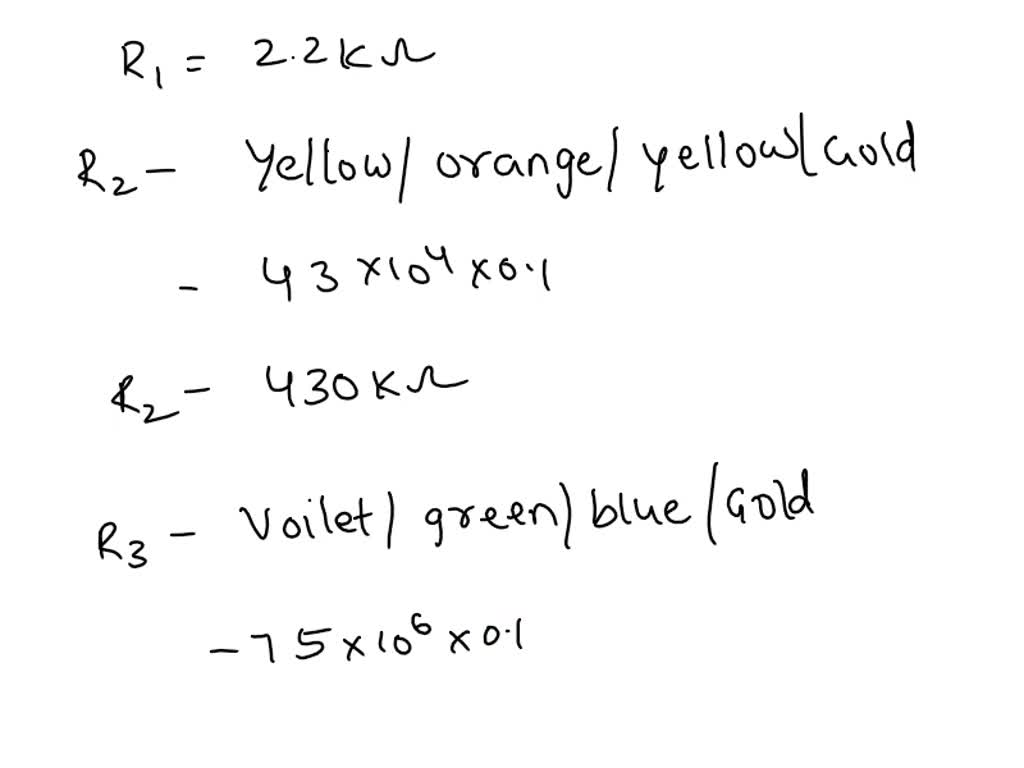 R1 = 2.2KΩ
R2 - Yellow/ orange/ yellow/ Gold
- 43 × 10⁴ × 0.1
R2 - 430KΩ
R3 - Voilet/ green/ blue/ Gold
- 75 × 10⁶ × 0.1